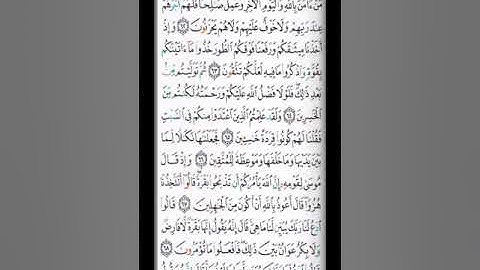 مَنْ ءَامَنَ بِٱللَّهِ وَٱلْيَوْمِ ٱلْءَاخِرِ وَعَمِلَ صَٰلِحًا فَلَهُمْ أَجْرُهُمْ
عِندَ رَبِّهِمْ وَلَا خَوْفٌ عَلَيْهِمْ وَلَا هُمْ يَحْزَنُونَ ٦٢ وَإِذْ
أَخَذْنَا مِيثَٰقَكُمْ وَرَفَعْنَا فَوْقَكُمُ ٱلطُّورَ خُذُوا۟ مَآ ءَاتَيْنَٰكُم
بِقُوَّةٍ وَٱذْكُرُوا۟ مَا فِيهِ لَعَلَّكُمْ تَتَّقُونَ ٦٣ ثُمَّ تَوَلَّيْتُم مِّنۢ
بَعْدِ ذَٰلِكَ فَلَوْلَا فَضْلُ ٱللَّهِ عَلَيْكُمْ وَرَحْمَتُهُۥ لَكُنتُم مِّنَ
ٱلْخَٰسِرِينَ ٦٤ وَلَقَدْ عَلِمْتُمُ ٱلَّذِينَ ٱعْتَدَوْا۟ مِنكُمْ فِى ٱلسَّبْتِ
فَقُلْنَا لَهُمْ كُونُوا۟ قِرَدَةً خَٰسِـِٔينَ ٦٥ فَجَعَلْنَٰهَا نَكَٰلًا لِّمَا
بَيْنَ يَدَيْهَا وَمَا خَلْفَهَا وَمَوْعِظَةً لِّلْمُتَّقِينَ ٦٦ وَإِذْ قَالَ
مُوسَىٰ لِقَوْمِهِۦٓ إِنَّ ٱللَّهَ يَأْمُرُكُمْ أَن تَذْبَحُوا۟ بَقَرَةً قَالُوٓا۟ أَتَتَّخِذُنَا
هُزُوًا قَالَ أَعُوذُ بِٱللَّهِ أَنْ أَكُونَ مِنَ ٱلْجَٰهِلِينَ ٦٧ قَالُوا۟
ٱدْعُ لَنَا رَبَّكَ يُبَيِّن لَّنَا مَا هِىَ قَالَ إِنَّهُۥ يَقُولُ إِنَّهَا بَقَرَةٌ لَّا فَارِضٌ
وَلَا بِكْرٌ عَوَانٌۢ بَيْنَ ذَٰلِكَ فَٱفْعَلُوا۟ مَا تُؤْمَرُونَ ٦٨